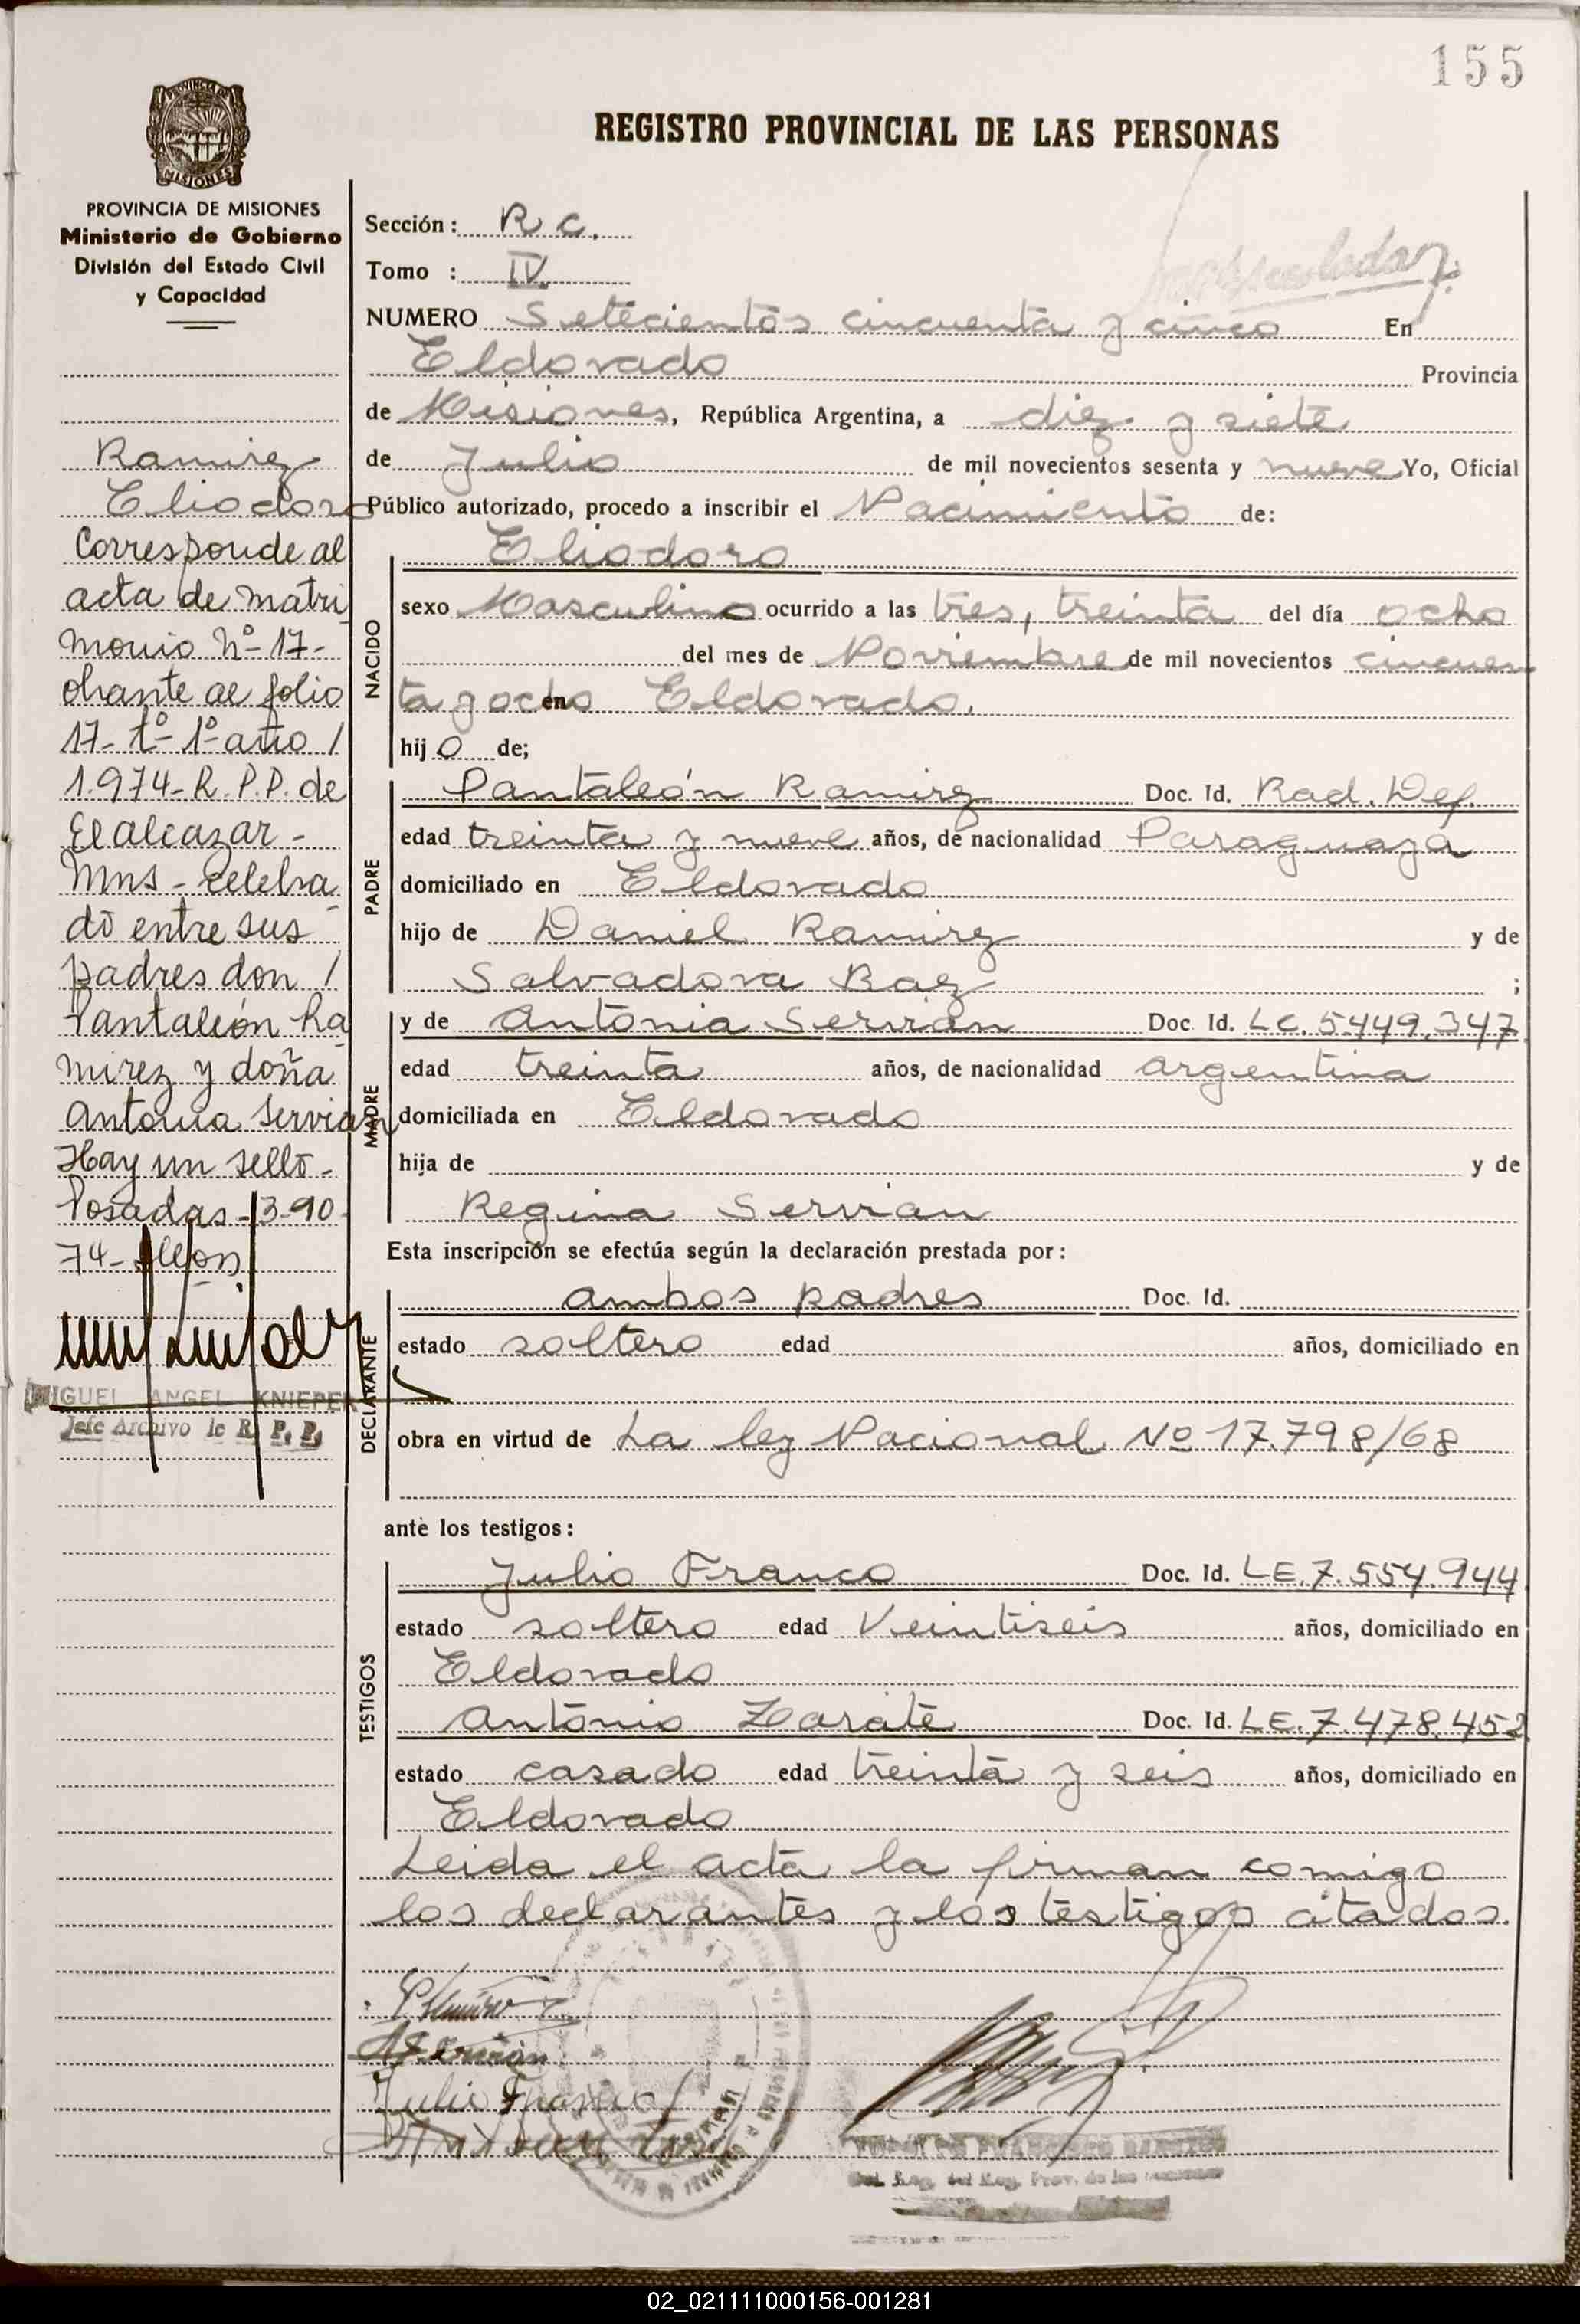 155
REGISTRO PROVINCIAL DE LAS PERSONAS
PROVINCIA DE MISIONES
MISIONES
PROVINCIA DE MISIONES
Ministerio de Gobierno
División del Estado Civil
y Capacidad
Ramirez
Eliodoro
Corresponde al
acta de matri
monio Nº 17-
obrante al folio
17- tº 1º año /
1.974- R.P.P. de
El alcazar -
Mns - Celebra
do entre sus
padres don /
Pantaleón Ra
mirez y doña
Antonia Servian
Hay un sello -
Posadas - 
74-
MIGUEL ANGEL KNIEPER
Jefe Archivo de R. P. P.
Sección: R c.
Tomo : IV.
NUMERO Setecientos cincuenta y cinco En
Eldorado Provincia
de Misiones, República Argentina, a diez y siete
de Julio de mil novecientos sesenta y nueve Yo, Oficial
Público autorizado, procedo a inscribir el Nacimiento de:
NACIDO
Eliodoro
sexo Masculino ocurrido a las tres, treinta del día ocho
del mes de Noviembre de mil novecientos cincuen
ta y ocho en Eldorado.
hijo de;
PADRE
Pantaleón Ramirez Doc. Id. Rad. Def.
edad treinta y nueve años, de nacionalidad Paraguaya
domiciliado en Eldorado
hijo de Daniel Ramirez y de
Salvadora Baez ;
MADRE
y de Antonia Servián Doc. Id. LC. 5449.347
edad treinta años, de nacionalidad argentina
domiciliada en Eldorado
hija de y de
Regina Servian
Esta inscripción se efectúa según la declaración prestada por:
DECLARANTE
ambos padres Doc. Id.
estado soltero edad años, domiciliado en
obra en virtud de La ley Nacional Nº 17.798/68
ante los testigos:
TESTIGOS
Julio Franco Doc. Id. LE. 7.554.944
estado soltero edad Veintiseis años, domiciliado en
Eldorado
Antonio Zarate Doc. Id. LE. 7.478.452
estado casado edad treinta y seis años, domiciliado en
Eldorado
Leida el acta la firman comigo
los declarantes y los testigos citados.
A Servián
Julio Franco
02_021111000156-001281